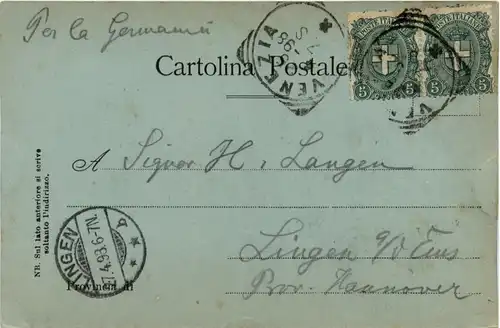 Per la Germania
Cartolina Postale
VENEZIA
POSTE ITALIANE
5 5
5 5
A Signor H. Langen
Lingen a/d Ems
Prov. Hannover
LINGEN
7.4.98.6-7N.
Provincia di
NB. Sul lato anteriore si scrive
soltanto l'indirizzo.